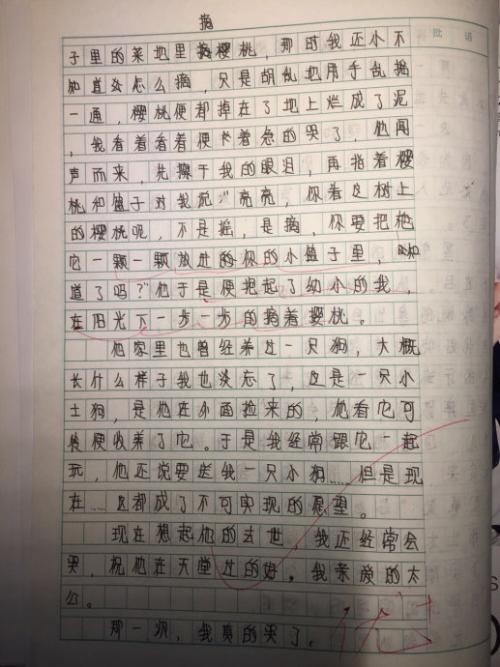 批 语
摘
子里的菜地里摘樱桃，那时我还小不
知道该怎么摘，只是胡乱地用手乱摇
一通，樱桃便都掉在了地上烂成了泥
，我看着看着便卡着急的哭了，他闻
声而来，先擦干我的眼泪，再指着樱
桃和篮子对我说“亮亮，你看这树上
的樱桃呢，不是摇，是摘，你要把他
它一颗一颗放进的你的小篮子里，知
道了吗？”他于是便抱起了幼小的我，
在阳光下一步一步的摘着樱桃。
他家里也曾经养过一只狗，大概
长什么样子我也淡忘了，这是一只小
土狗，是他在外面捡来的，他看它可
便收养了它。于是我经常跟它一起
玩，他还说要送我一只小狗……但是现
在……这都成了不可实现的愿望。
现在想起他的去世，我还经常会
哭，祝他在天堂过的好。我亲爱的太
公。
那一次，我真的哭了。
优